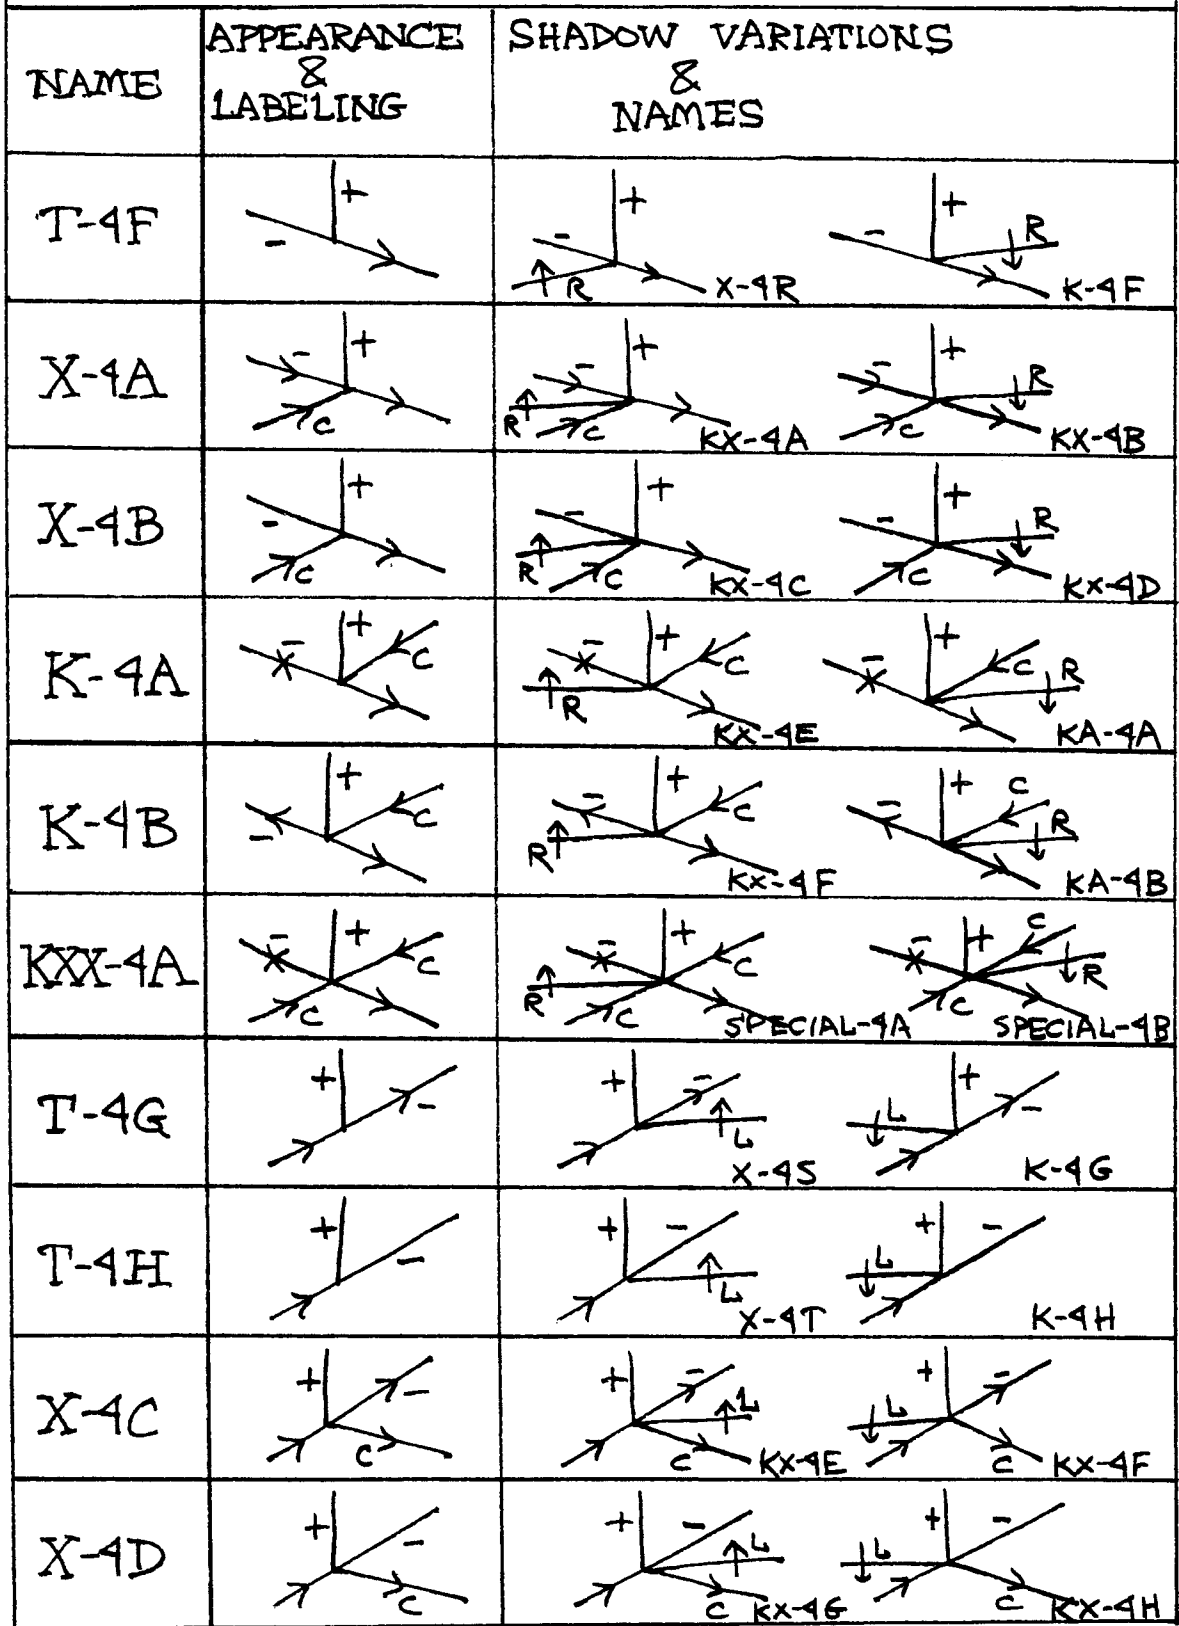 NAME
APPEARANCE
&
LABELING
SHADOW VARIATIONS
&
NAMES
T-4F
+
-
+
-
R
X-4R
+
-
R
K-4F
X-4A
+
-
C
+
-
R
C
KX-4A
+
-
R
C
KX-4B
X-4B
+
-
C
+
-
R
C
KX-4C
+
-
R
C
KX-4D
K-4A
+
-
C
+
-
C
R
KX-4E
+
-
C
R
KA-4A
K-4B
+
-
C
+
-
C
R
KX-4F
+
-
C
R
KA-4B
KXX-4A
+
-
C
C
+
-
C
R
C
SPECIAL-4A
+
-
C
R
C
SPECIAL-4B
T-4G
+
-
+
-
L
X-4S
+
-
L
K-4G
T-4H
+
-
+
-
L
X-4T
+
-
L
K-4H
X-4C
+
-
C
+
-
L
C
KX-4E
+
-
L
C
KX-4F
X-4D
+
-
C
+
-
L
C
KX-4G
+
-
L
C
KX-4H